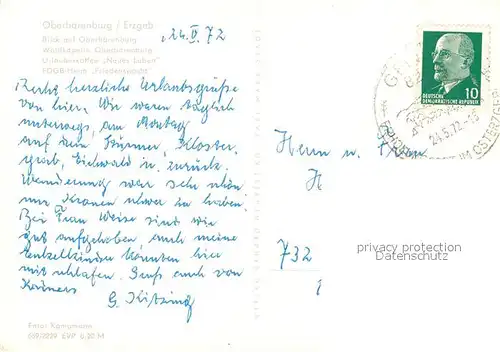 Oberbärenburg / Erzgeb
Blick auf Oberbärenburg
Waldkapelle Oberbärenburg
Urlaubertreffen „Neues Leben“
FDGB-Heim „Friedenswacht“
24. V. 72
Recht herzliche Urlaubsgrüße
von hier. Wir waren täglich
unterwegs, am Montag
auf dem Stürmer, Kloster-
grab, Eichwald u. zurück.
Wanderung war sehr schön
nur Kronen schwer zu haben.
Bei Frau Weise sind wir
gut aufgehoben, auch meine
Enkelkinder konnten hier
mit schlafen. Gruß auch von
G. Kitzing
Foto: Kampmann
EVP 0,20 M
DEUTSCHE
DEMOKRATISCHE REPUBLIK
10
24.5.72
OSTERZGEB
Herrn u. Frau
H
732
1
privacy protection
Datenschutz